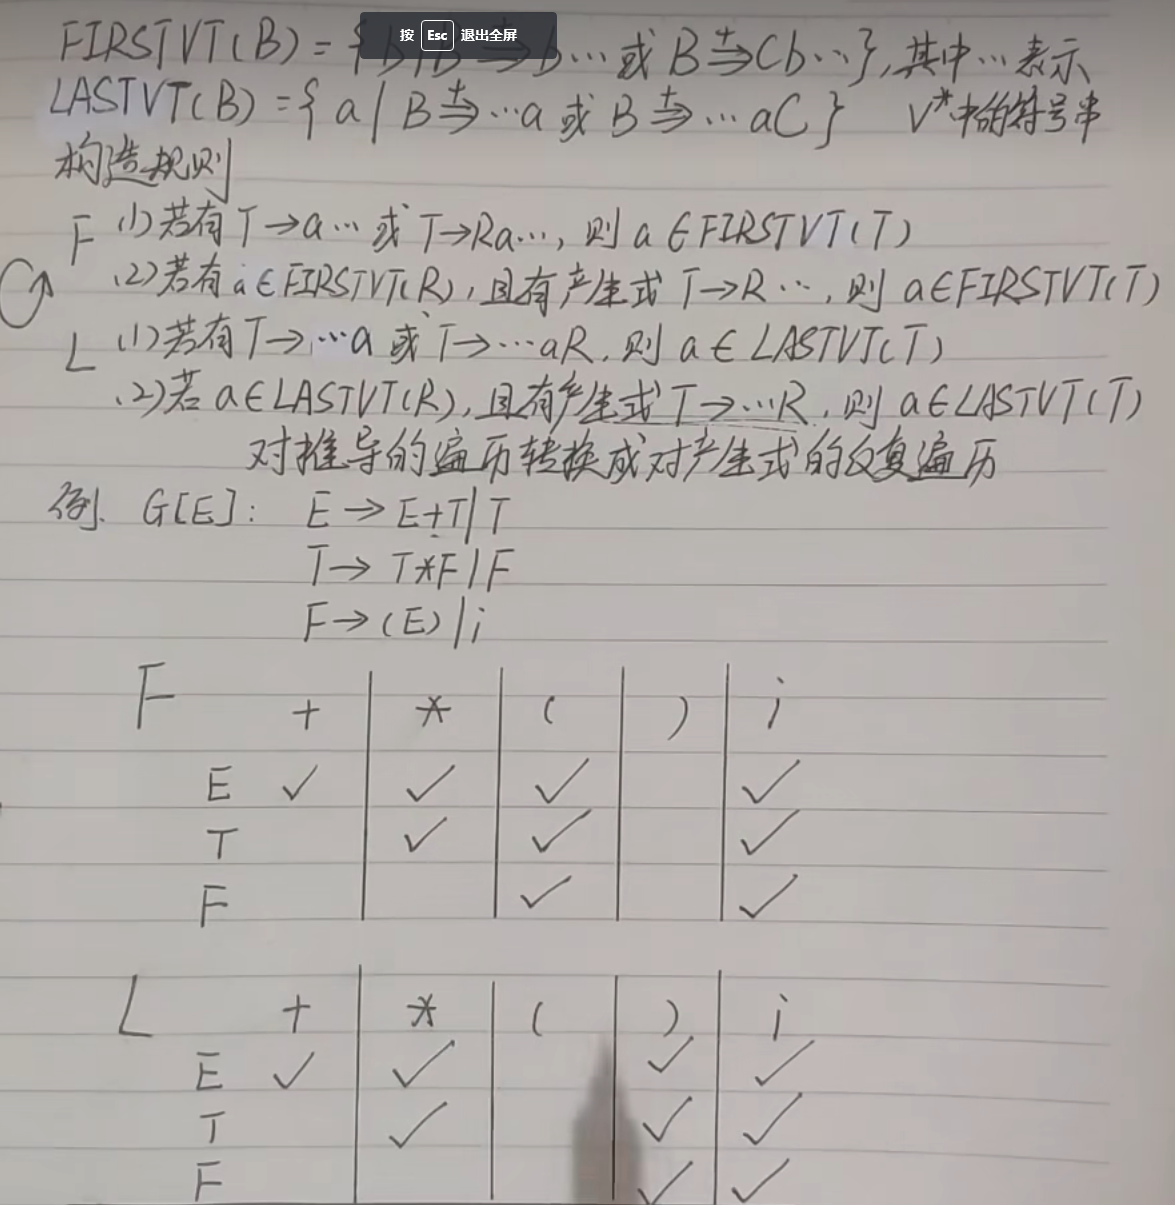 按 Esc 退出全屏
FIRSTVT(B) = { b | B ⇒⁺ b… 或 B ⇒⁺ Cb…}, 其中…表示
LASTVT(B) = { a | B ⇒⁺ …a 或 B ⇒⁺ …aC } V*中的符号串
构造规则
F (1)若有 T→a… 或 T→Ra…, 则 a∈FIRSTVT(T)
(2)若有 a∈FIRSTVT(R), 且有产生式 T→R…, 则 a∈FIRSTVT(T)
L (1)若有 T→…a 或 T→…aR, 则 a∈LASTVT(T)
(2)若 a∈LASTVT(R), 且有产生式 T→…R, 则 a∈LASTVT(T)
对推导的遍历转换成对产生式的反复遍历
例. G[E]: E→E+T|T
T→T*F|F
F→(E)|i
F + * ( ) i
E ✓ ✓ ✓ ✓
T ✓ ✓ ✓
F ✓ ✓
L + * ( ) i
E ✓ ✓ ✓ ✓
T ✓ ✓ ✓
F ✓ ✓